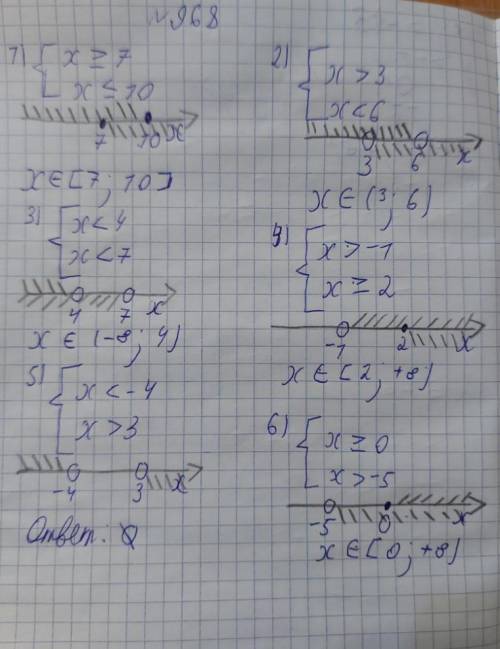 №968
1) { x ≥ 7
x ≤ 10
7 10 x
x ∈ [7; 10]
2) { x > 3
x < 6
3 6 x
x ∈ (3; 6)
3) { x < 4
x < 7
4 7 x
x ∈ (-∞; 4)
4) { x > -1
x ≥ 2
-1 2 x
x ∈ [2; +∞)
5) { x < -4
x > 3
-4 3 x
Ответ: ∅
6) { x ≥ 0
x > -5
-5 0 x
x ∈ [0; +∞)